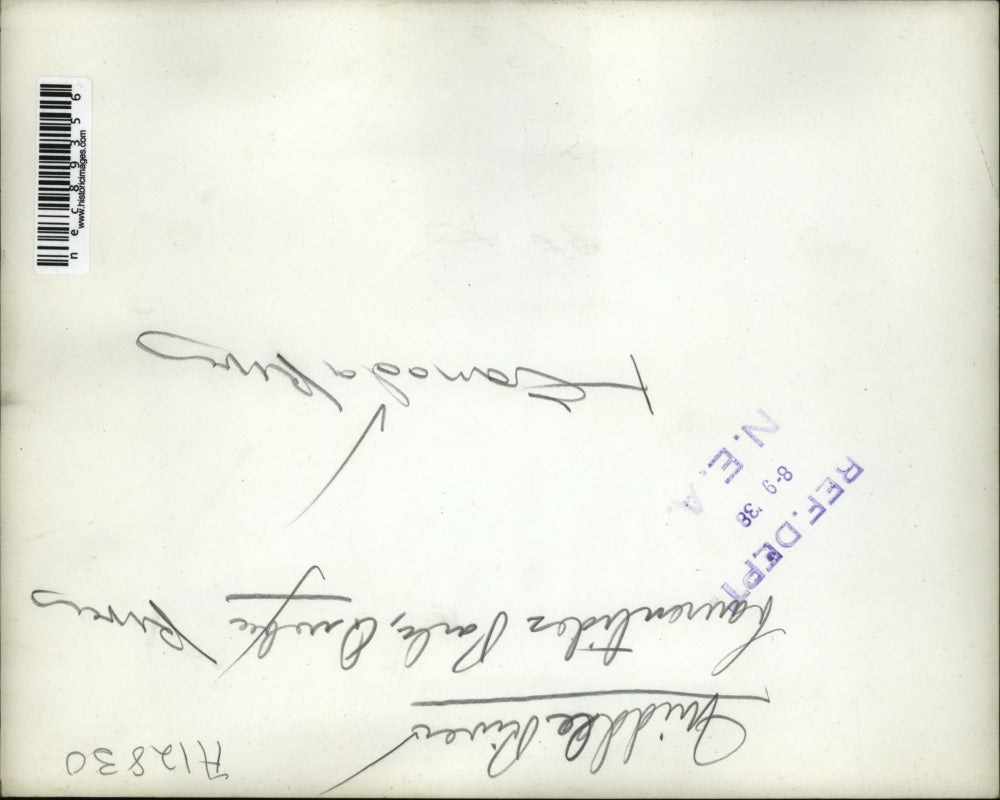 A12830
Middle River
Laurentides Park, Quebec
Rivers
Canada Rivers
REF. DEPT.
8-9 '38
N.E.A.
nec89356
www.historicimages.com